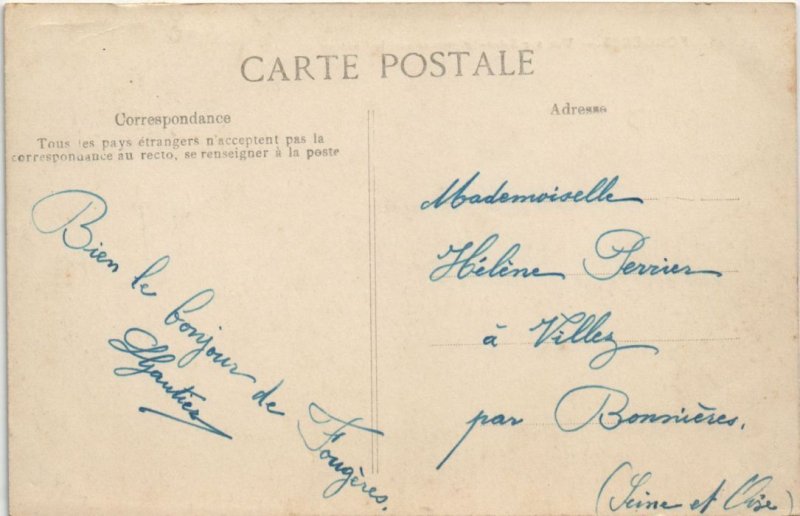 CARTE POSTALE
Correspondance
Tous les pays étrangers n'acceptent pas la
correspondance au recto, se renseigner à la poste
Bien le bonjour de Fougères.
LGautier
Adresse
Mademoiselle
Hélène Perrier
à Villez
par Bonnières.
(Seine et Oise)